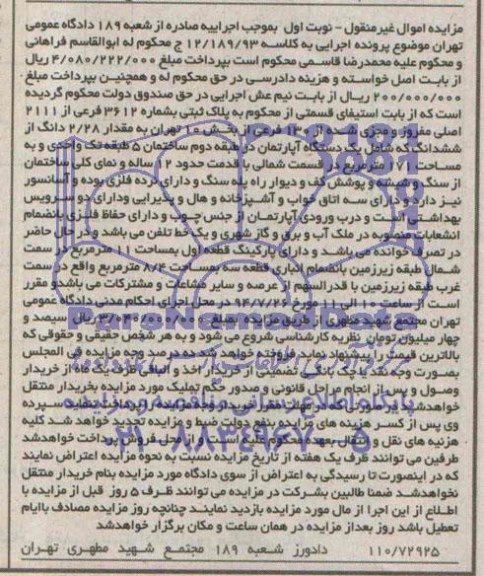 مزایده اموال غیرمنقول - نوبت اول بموجب اجراییه صادره از شعبه ۱۸۹ دادگاه عمومی
تهران موضوع پرونده اجرایی به کلاسه ۱۲/۱۸۹/۹۳ ج محکوم له ابوالقاسم فراهانی
و محکوم علیه محمدرضا قاسمی محکوم است بپرداخت مبلغ ۴/۰۸۰/۲۲۲/۰۰۰ ریال
از بابت اصل خواسته و هزینه دادرسی در حق محکوم له و همچنین بپرداخت مبلغ
۲۰۰/۰۰۰/۰۰۰ ریال از بابت نیم عشر اجرایی در حق صندوق دولت محکوم گردیده
است که از بابت استیفای قسمتی از محکوم به پلاک ثبتی بشماره ۳۶۱۲ فرعی از ۲۱۱۱
اصلی مفروز و مجزی شده از ۱۳۰ فرعی از بخش ۱۰ تهران به مقدار ۲/۲۸ دانگ از
ششدانگ که شامل یک دستگاه آپارتمان در طبقه دوم ساختمان ۵ طبقه تک واحدی و به
مساحت ۱۷۱ مترمربع در قسمت شمالی با قدمت حدود ۱۲ ساله و نمای کلی ساختمان
از سنگ و شیشه و پوشش کف و دیوار راه پله سنگ و دارای نرده فلزی بوده و آسانسور
نیز دارد و دارای سه اتاق خواب و آشپزخانه و هال و پذیرایی ودارای دو سرویس
بهداشتی است و درب ورودی آپارتمان از جنس چوب و دارای حفاظ فلزی بانضمام
انشعابات منصوبه در ملک آب و برق و گاز شهری و یک خط تلفن می باشد و در حال حاضر
در تصرف خوانده می باشد و دارای پارکینگ قطعه اول بمساحت ۱۱ مترمربع در سمت
شمال طبقه زیرزمین بانضمام انباری قطعه سه بمساحت ۸/۴ مترمربع واقع در سمت
غرب طبقه زیرزمین با قدرالسهم از عرصه و سایر مشاعات و مشترکات می باشدو مقرر
است از ساعت ۱۰ الی ۱۱ مورخ ۹۴/۷/۲۶ در محل اجرای احکام مدنی دادگاه عمومی
تهران مجتمع شهید مطهری از طریق مزایده بمبلغ ۳/۰۴۰/۰۰۰/۰۰۰ ریال سیصد و
چهار میلیون تومان نظریه کارشناسی شروع می شود و به هر شخص حقیقی و حقوقی که
بالاترین قیمت را پیشنهاد نماید فروخته خواهد شد ده درصد وجه مزایده فی المجلس
بصورت وجه نقد یا چک بانکی تضمینی از خریدار اخذ و الباقی ظرف یک ماه از خریدار
وصول و پس از انجام مراحل قانونی و صدور حکم تملیک مورد مزایده بخریدار منتقل
خواهدشد در صورتی که در مهلت مقرر خریدار وجه مزایده را پرداخت ننماید سپرده
وی پس از کسر هزینه های مزایده بنفع دولت ضبط و مزایده تجدید خواهد شد کلیه
هزنیه های نقل و انتقال بعهده محکوم علیه است و از محل فروش پرداخت خواهدشد
طرفین می توانند ظرف یک هفته از تاریخ مزایده نسبت به نحوه مزایده اعتراض نمایند
که در اینصورت تا رسیدگی به اعتراض از سوی دادگاه مورد مزایده بنام خریدار منتقل
نخواهدشد ضمنا طالبین بشرکت در مزایده می توانند ظرف ۵ روز قبل از مزایده با
اطلاع از این اجرا از مال مورد مزایده بازدید نمایند چنانچه روز مزایده مصادف باایام
تعطیل باشد روز بعداز مزایده در همان ساعت و مکان برگزار خواهدشد
۱۱۰/۷۲۹۲۵ دادورز شعبه ۱۸۹ مجتمع شهید مطهری تهران
ParsNamadData